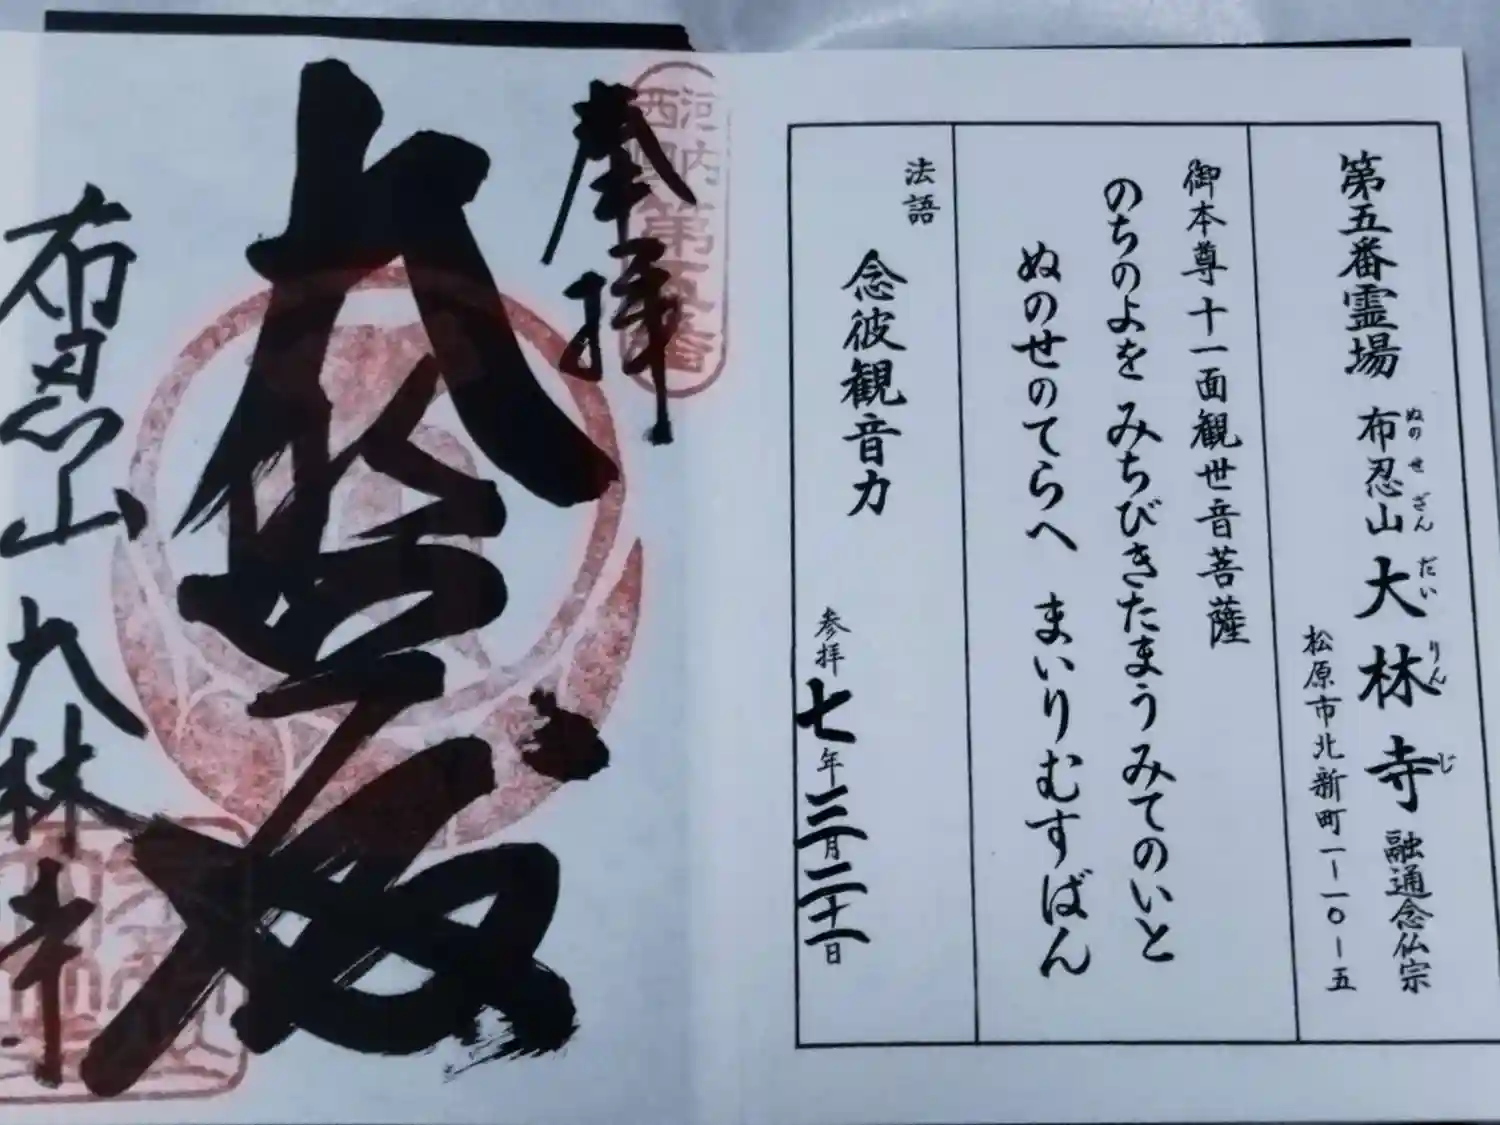 第五番霊場 布忍山 大林寺 融通念仏宗
ぬのせざん だいりんじ
松原市北新町一ー一〇ー五
御本尊 十一面観世音菩薩
のちのよを みちびきたまうみてのいと
ぬのせのてらへ まいりむすばん
法語 念彼観音力
参拝 七年 三月 二十一日
河内
西国
第五番
奉拝
大悲殿
布忍山 大林寺